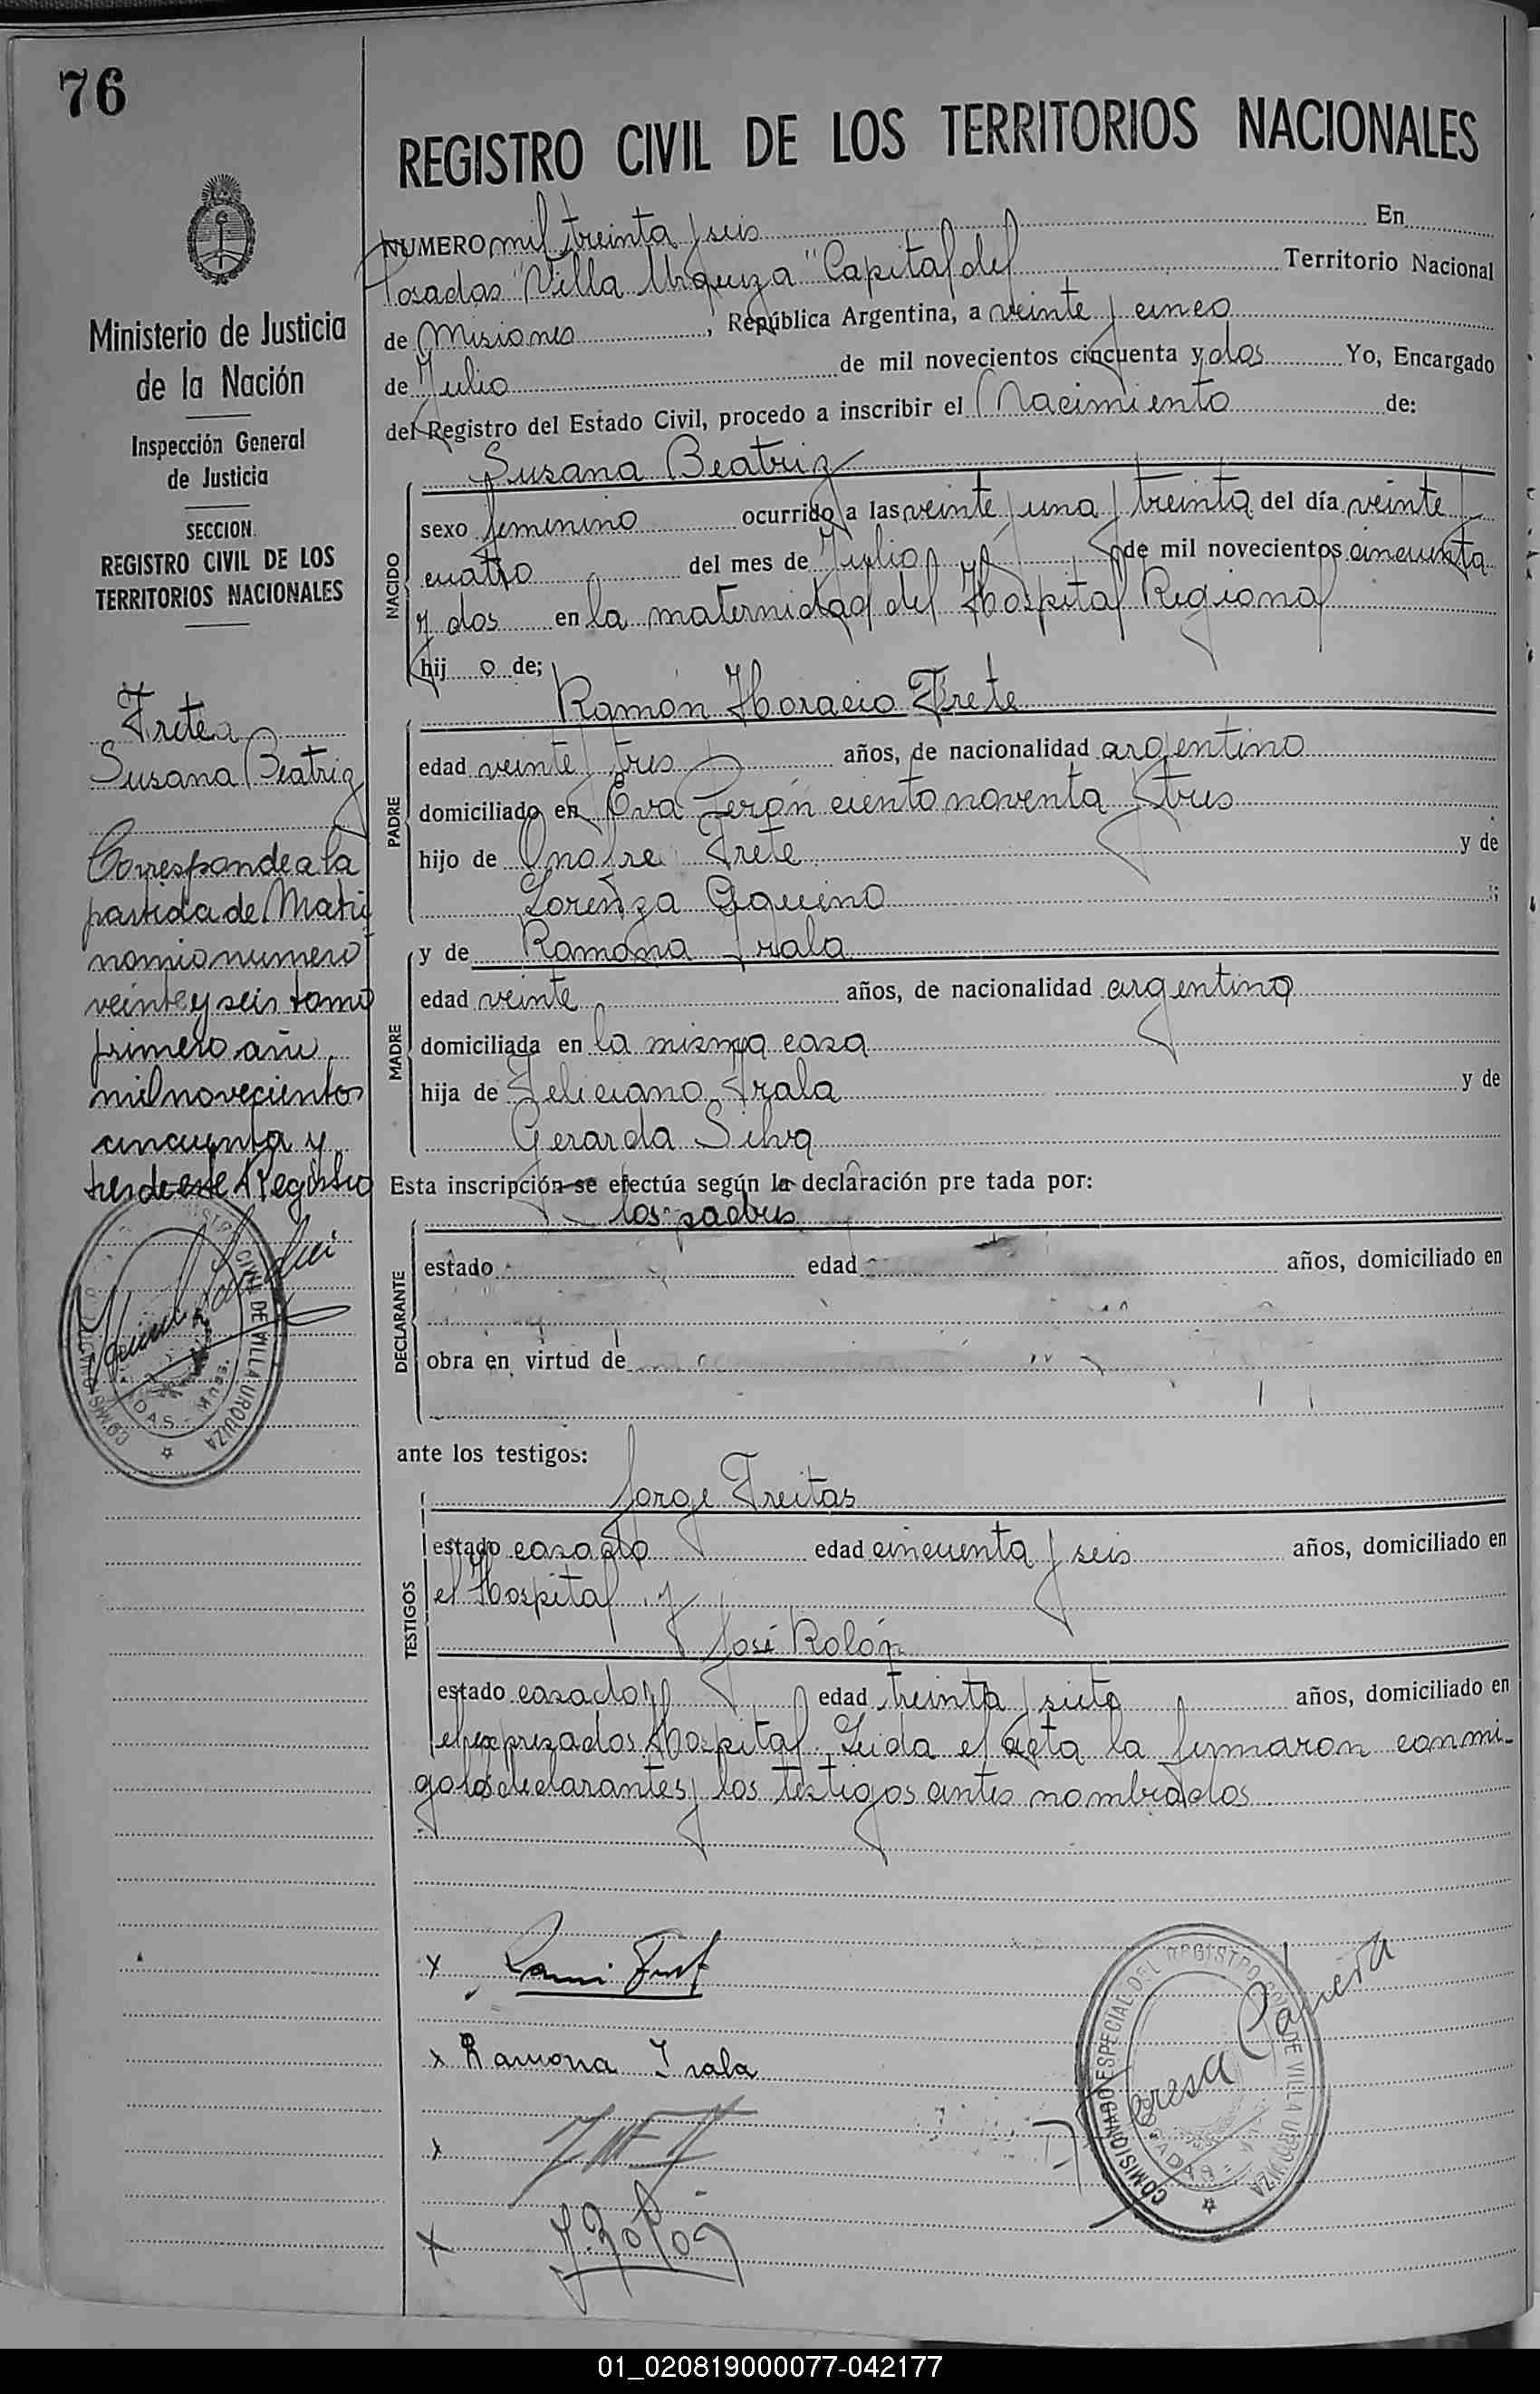 76
REGISTRO CIVIL DE LOS TERRITORIOS NACIONALES
Ministerio de Justicia
de la Nación
Inspección General
de Justicia
SECCION
REGISTRO CIVIL DE LOS
TERRITORIOS NACIONALES
Frete
Susana Beatriz
Corresponde a la
partida de Matri
monio numero
veinte y seis tomo
primero año
mil novecientos
cincuenta y
tres de este Registro
NUMERO mil treinta y seis En
Posadas "Villa Urquiza" Capital del Territorio Nacional
de Misiones, República Argentina, a veinte y cinco
de Julio de mil novecientos cincuenta y dos Yo, Encargado
del Registro del Estado Civil, procedo a inscribir el Nacimiento de:
NACIDO
Susana Beatriz
sexo femenino ocurrido a las veinte y una y treinta del día veinte y
cuatro del mes de Julio de mil novecientos cincuenta
y dos en la maternidad del Hospital Regional
hij o de;
PADRE
Ramón Horacio Frete
edad veinte y tres años, de nacionalidad argentino
domiciliado en Eva Perón ciento noventa y tres
hijo de Onofre Frete y de
Lorenza Aquino;
MADRE
y de Ramona Irala
edad veinte años, de nacionalidad argentina
domiciliada en la misma casa
hija de Feliciano Irala y de
Gerarda Silva
Esta inscripción se efectúa según la declaración pre tada por:
DECLARANTE
los padres
estado edad años, domiciliado en
obra en virtud de
ante los testigos:
TESTIGOS
Jorge Freitas
estado casado edad cincuenta y seis años, domiciliado en
el Hospital y
José Rolón
estado casado edad treinta y siete años, domiciliado en
el expresados Hospital. Leida el acta la firmaron conmi-
go los declarantes y los testigos antes nombrados.
x
x Ramona Irala
x
x J. Rolón
COMISIONADO ESPECIAL DEL REGISTRO CIVIL DE VILLA URQUIZA
Teresa Cabrera
01_020819000077-042177